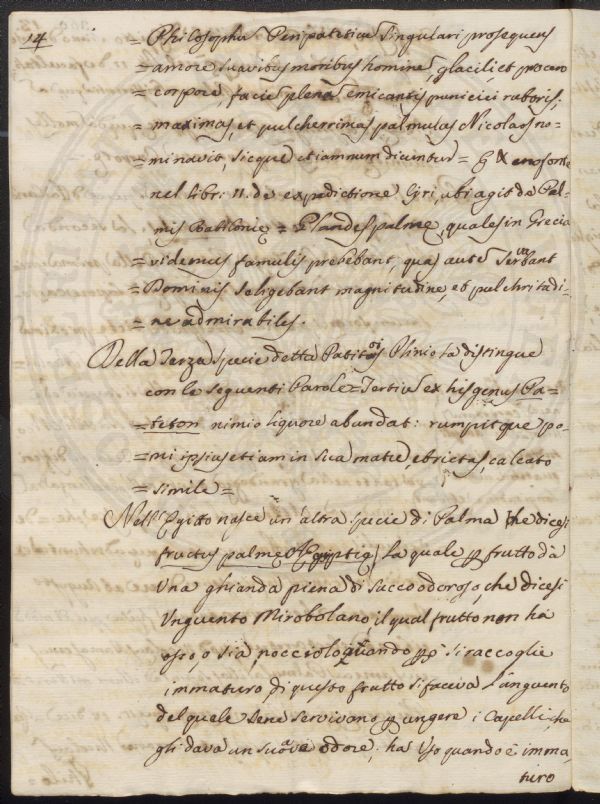 14
= Philosophu Peripateticu Singulari prosequens
= amore suavibus moribus homine, glacili, et procero
= corpore, facie plena emicantis punicici ruboris:
= maximas, et pulcherrimas palmulas Nicolaos no=
= minavit, sicque etiamnum dicuntur = E Xenofonte
nel Libr: 11. de expedictione Cyri, ubi agit de Pal=
mis Babilonie = Glandes palme, quales in Grecia
= videmus famulis prebebant, quas aute Servant
va
= Dominis seligebant magnitudine, et pulchritudi=
= ne admirabiles.
Della Terza specie detta Patitoi Plinio la distingue
con le seguenti Parole = Tertiu ex his genus Pa=
= teton nimio liquore abundat: rumpitque po=
= mi ipsius etiam in sua matre, ebrietas, calcato
= simile =
Nell'Egitto nasce un'altra specie di Palma che dicesi
fructus palme Egiptie, la quale p frutto dà
una ghianda piena di succo odoroso che dicesi
Unguento Mirobolano, il qual frutto non há
osso, o sia nocciolo, quando p si raccoglie
immaturo, di questo frutto si faceva l'unguento
del quale sene servivano p ungere i Capelli, che
gli dava un suave odore; ha Uso quando è imma=
turo